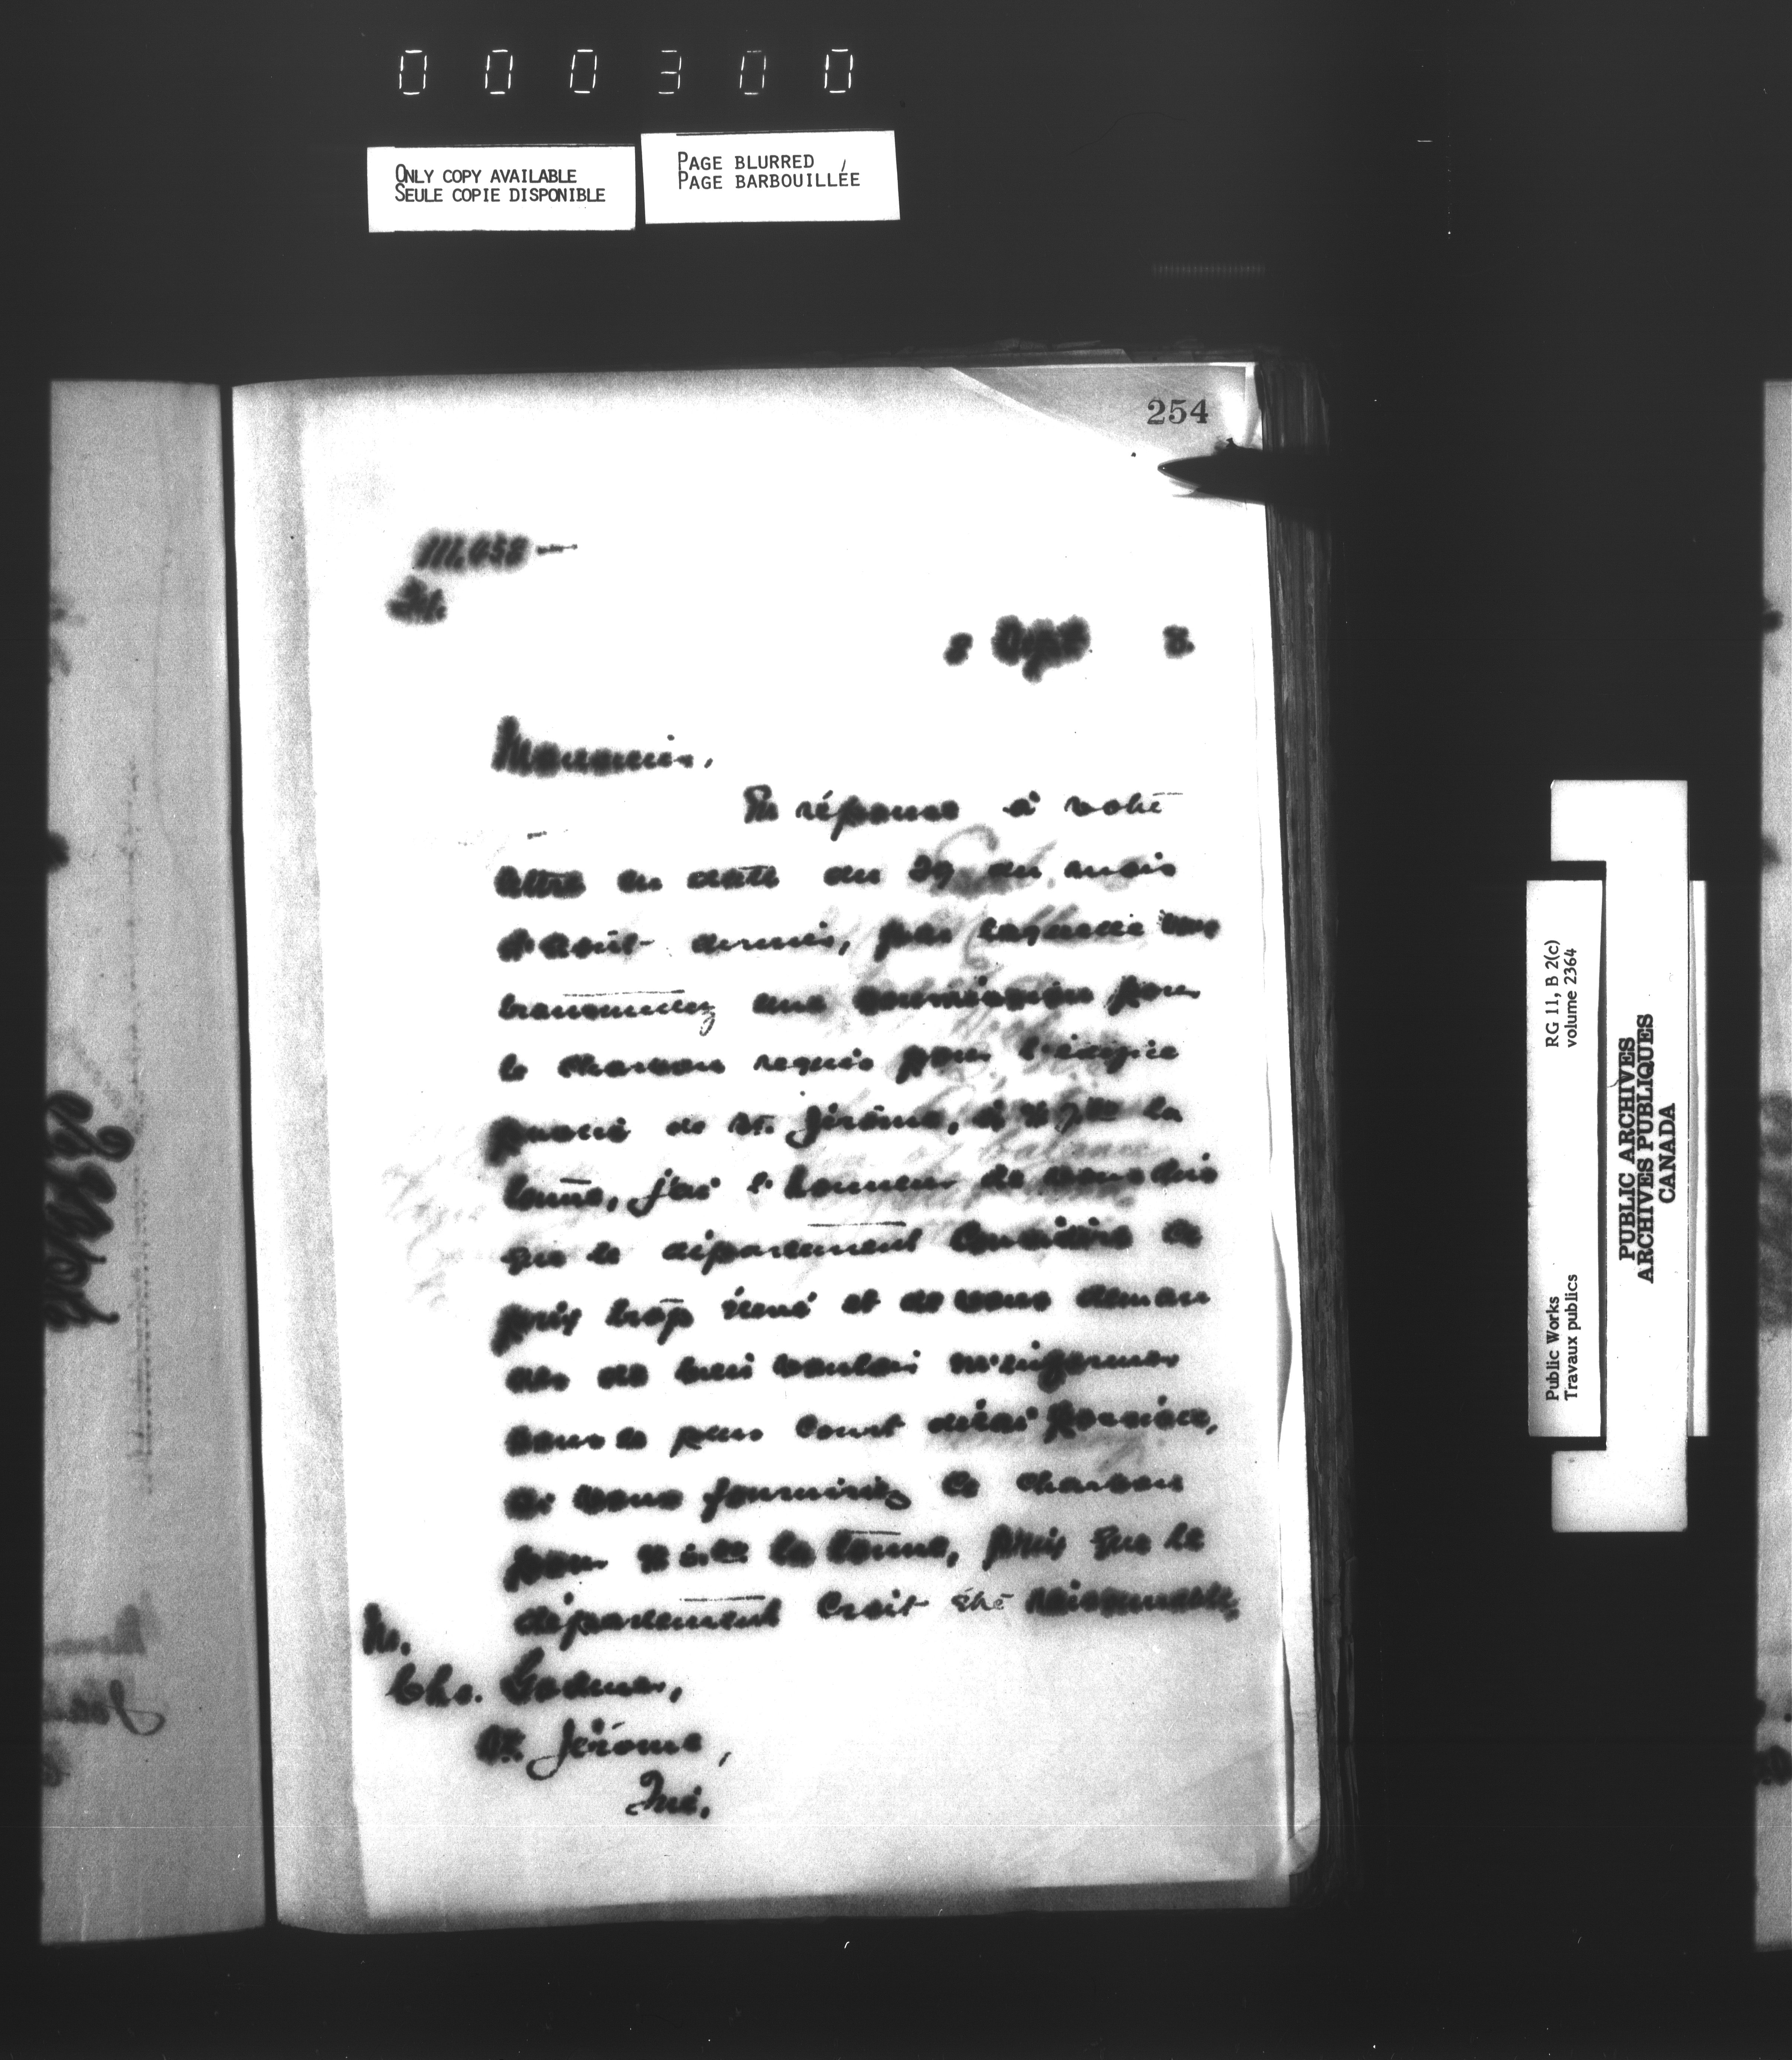 000300
ONLY COPY AVAILABLE
SEULE COPIE DISPONIBLE
PAGE BLURRED
PAGE BARBOUILLÉE
254
111,458
8 Sept 8.
Monsieur,
En réponse à votre
lettre en date du 29 du mois
d'août dernier, par laquelle vous
transmettez une soumission pour
le charbon requis pour l'édifice
public de St. Jérôme, à la
tonne, j'ai l'honneur de vous dire
que le département considère ce
prix trop élevé et de vous deman
der de bien vouloir m'informer
dans le plus court délai possible,
si vous fourniriez le charbon
pour la tonne, prix que le
département croit être raisonnable.
M.
Chs. Godmer,
St. Jérôme,
Qué.
Public Works
Travaux publics
RG 11, B 2(c)
volume 2364
PUBLIC ARCHIVES
ARCHIVES PUBLIQUES
CANADA